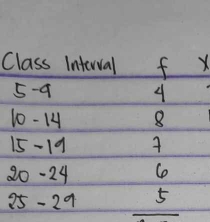 Class Interval f X
5-9 4
10-14 8
15-19 7
20-24 6
25-29 5